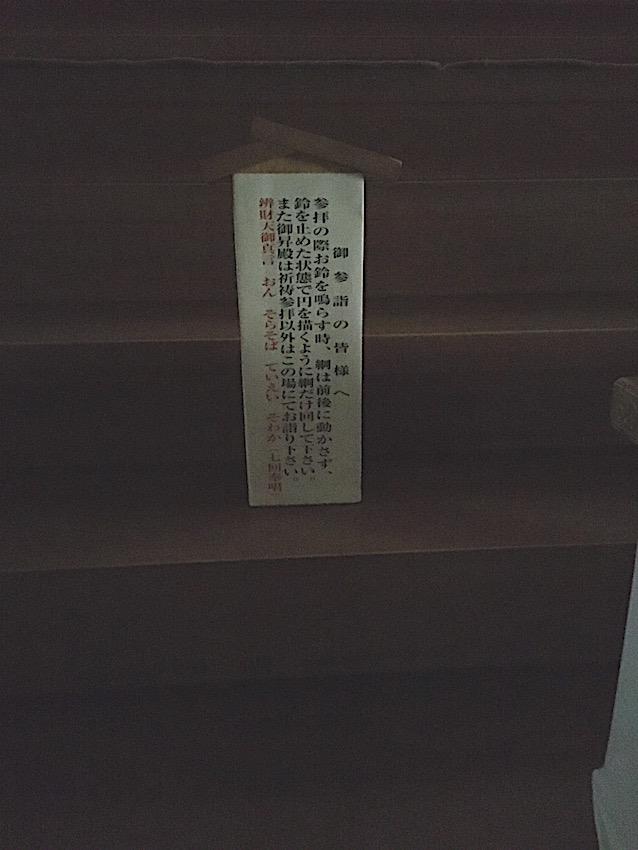 御参詣の皆様へ
参拝の際お鈴を鳴らす時、綱は前後に動かさず、
鈴を止めた状態で円を描くように綱だけ回して下さい。
また御昇殿は祈祷参拝以外はこの場にてお詣り下さい。
辨財天御真言 おん そらそば ていえい そわか（七回奉唱）